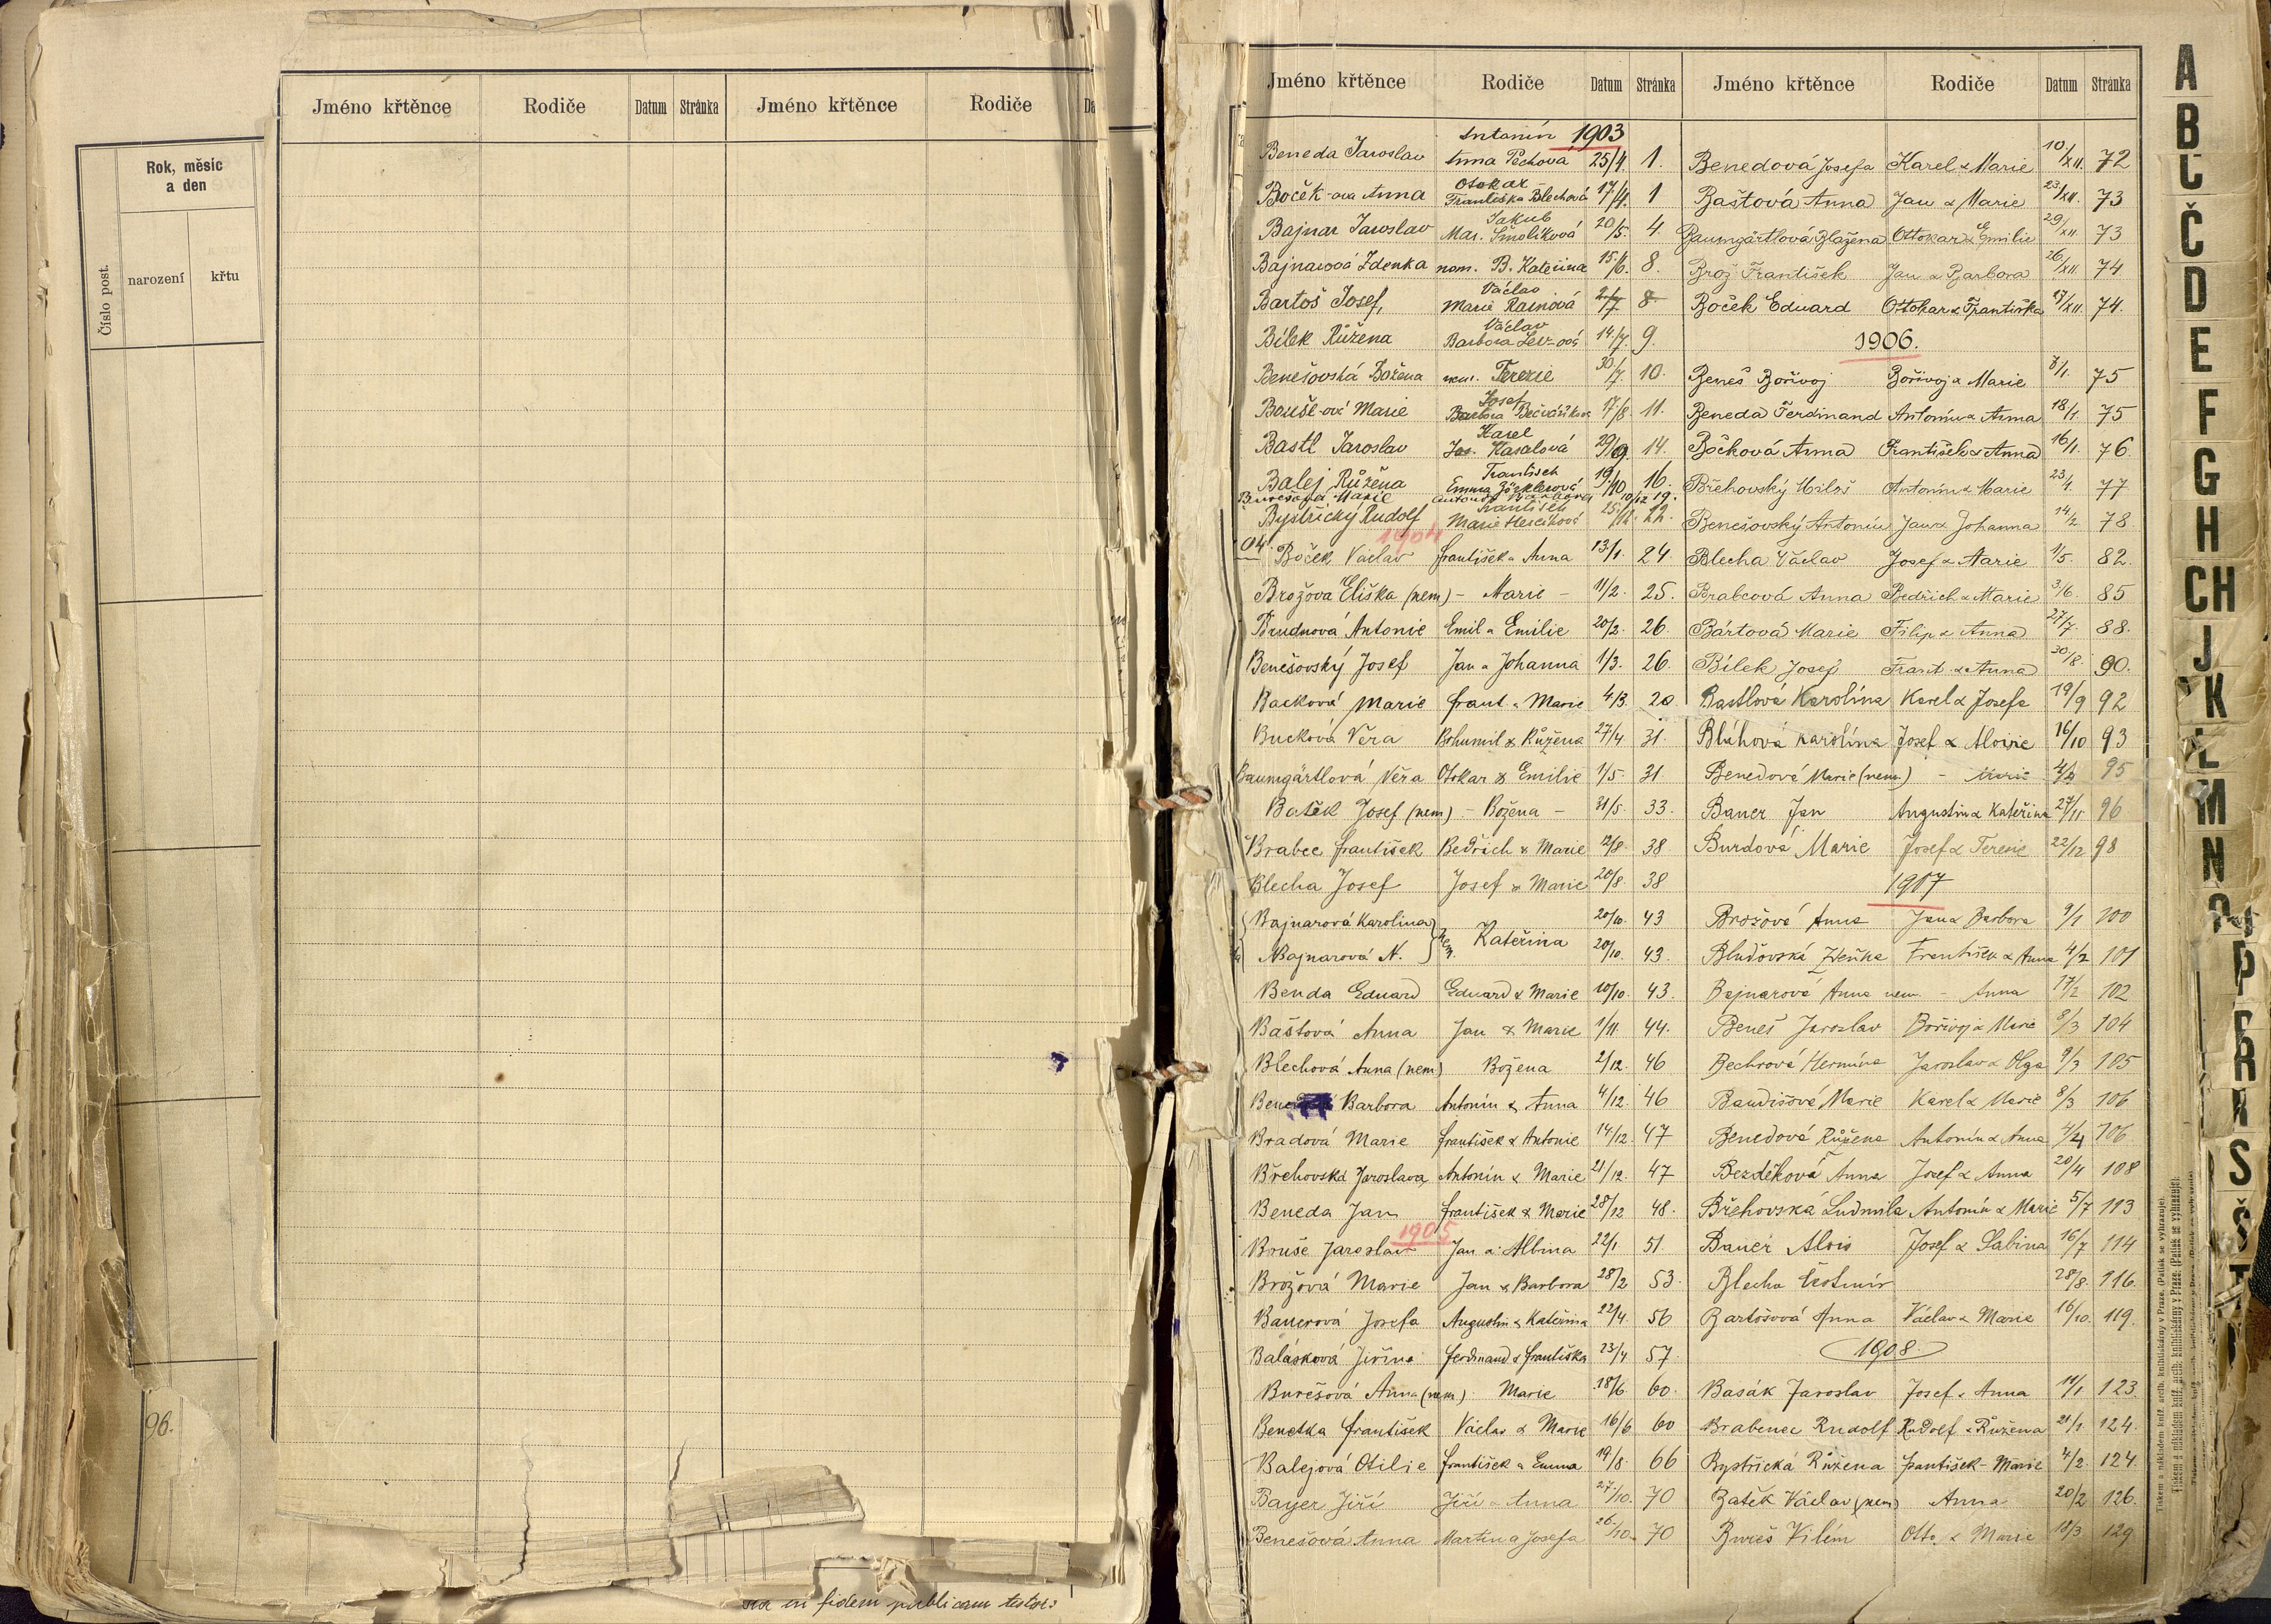 Rok, měsíc
a den
Číslo post.
narození
křtu
96.
Jméno křtěnce Rodiče Datum Stránka Jméno křtěnce Rodiče Da
in fidem publicam testor:
Jméno křtěnce Rodiče Datum Stránka
1903
Antonín
Beneda Jaroslav Anna Pechová 25/4. 1.
Otokar
Boček-ova Anna Františka Blechová 17/4. 1
Jakub
Bajnar Jaroslav Mar. Smolíková 20/5. 4.
Bajnarová Zdenka nem. B. Kateřina 15/6. 8.
Václav
Bartoš Josef, Marie 2/7 8
Václav
Bílek Růžena Barbora 14/7. 9.
Benešovská Božena nem. Terezie 30/7. 10.
Josef
Marie Barbora 17/8. 11.
Karel
Bastl Jaroslav Jos. Kasalová 29/9. 14.
František
Balej Růžena Emma 19/10 16.
Marie 10/12 19.
František
Bystřický Rudolf Marie 22.
1904
04. Boček Václav František a Anna 13/1. 24.
Brožova Eliška (nem) – Marie – 11/2. 25.
Antonie Emil a Emilie 20/2. 26.
Benešovský Josef Jan a Johanna 1/3. 26.
Marie Frant. a Marie 4/3.
Bucková Věra Bohumil & Růžena 27/4 31.
Baumgärtlová Věra Otokar & Emilie 1/5. 31
Batěk Josef (nem) – Božena – 31/5. 33.
Brabec František Bedřich & Marie 12/8. 38
Blecha Josef Josef & Marie 20/8. 38
Bajnarová Karolina 20/10. 43
nem. Kateřina
Bajnarová N. 20/10. 43.
Benda Eduard Eduard & Marie 10/10. 43.
Baštová Anna Jan & Marie 1/11. 44.
Blechová Anna (nem) Božena 2/12. 46
Barbora Antonín & Anna 4/12. 46
Bradová Marie František & Antonie 14/12. 47
Břehovská Jaroslava Antonín & Marie 21/12. 47
Beneda Jan František & Marie 28/12 48.
1905
Bruše Jaroslav Jan a Albina 22/1 51.
Brožová Marie Jan & Barbora 28/2 53.
Bauerová Josefa Augustin & Kateřina 22/4. 56
Balásková Jiřina Ferdinand & Františka 23/4 57.
Burešová Anna (nem) Marie 18/6 60.
Benetka František Václav & Marie 16/6 60
Balejová Otilie František a Emma 19/8. 66
Bayer Jiří Jiří a Anna 27/10. 70
Benešová Anna Martin a Josefa 26/10. 70
Jméno křtěnce Rodiče Datum Stránka
Benedová Josefa Karel & Marie 10/XII. 72
Baštová Anna Jan & Marie 23/XII. 73
Baumgärtlová Blažena Ottokar & Emilie 29/XII 73
Brož František Jan & Barbora 26/XII. 74
Boček Eduard Ottokar & Františka 17/XII. 74.
1906.
Beneš Bořivoj Bořivoj & Marie 8/1. 75
Beneda Ferdinand Antonín & Anna 18/1 75
Bočková Anna František & Anna 16/1. 76.
Břehovský Miloš Antonín & Marie 77
Benešovský Antonín Jan & Johanna 14/2 78.
Blecha Václav Josef & Marie 1/5. 82.
Brabcová Anna Bedřich & Marie 3/6. 85
Bártová Marie Filip & Anna 27/7. 88.
Bílek Josef Frant. & Anna 30/8. 90.
Bastlová Karolína Karel & Josefa 19/9 92
Bláhová Karolína Josef & Aloisie 16/10 93
Benedová Marie (nem) – Marie 95
Bauer Jan Augustin & Kateřina 27/11 96
Burdová Marie Josef & Terezie 22/12 98
1907
Brožová Anna Jan & Barbora 9/1 100
Bludovská Zdeňka František & Anna 4/2 101
Bajnarová Anna nem. – Anna 17/2 102
Beneš Jaroslav Bořivoj & Marie 8/3 104
Bechrová Hermína Jaroslav & Olga 9/3 105
Baudišová Marie Karel & Marie 8/3 106
Benedová Růžena Antonín & Anna 4/4 106
Bezděková Anna Josef & Anna 20/4 108
Břehovská Ludmila Antonín & Marie 5/7 113
Bauer Alois Josef & Sabina 16/7 114
Blecha Čestmír 28/8. 116.
Bartošová Anna Václav & Marie 16/10. 119.
1908.
Basák Jaroslav Josef & Anna 14/1 123.
Brabenec Rudolf Rudolf & Růžena 21/1 124.
Bystřická Růžena František – Marie 4/2. 124.
Batěk Václav (nem) Anna 20/2 126.
Bureš Vilém Otto & Marie 18/3. 129
A
B
C
Č
D
E
F
G
H
CH
J
K
L
M
N
P
R
S
Š
T